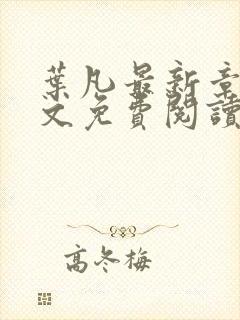 葉凡最新章
文免費閱讀
高冬梅